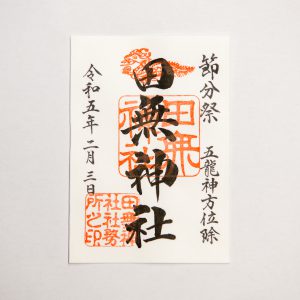 節分祭
五龍神方位除
田無神社
田無神社
令和五年二月三日
田無神
社社務
所之印